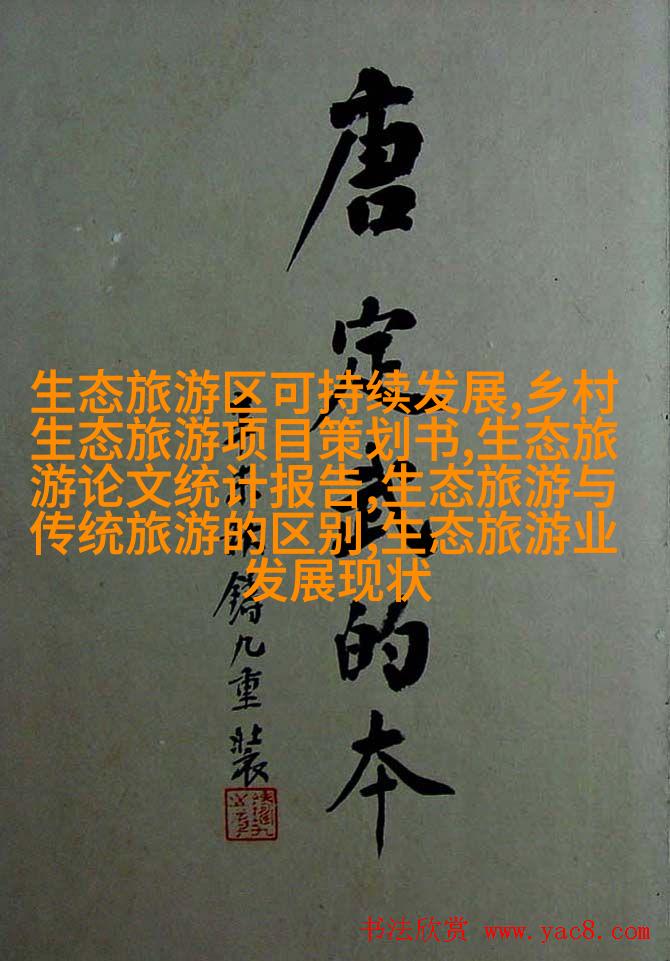 唐定武的本
鑄九重裝
生态旅游区可持续发展,乡村
生态旅游项目策划书,生态旅
游论文统计报告,生态旅游与
传统旅游的区别,生态旅游业
发展现状
书法欣赏 www.yac8.com